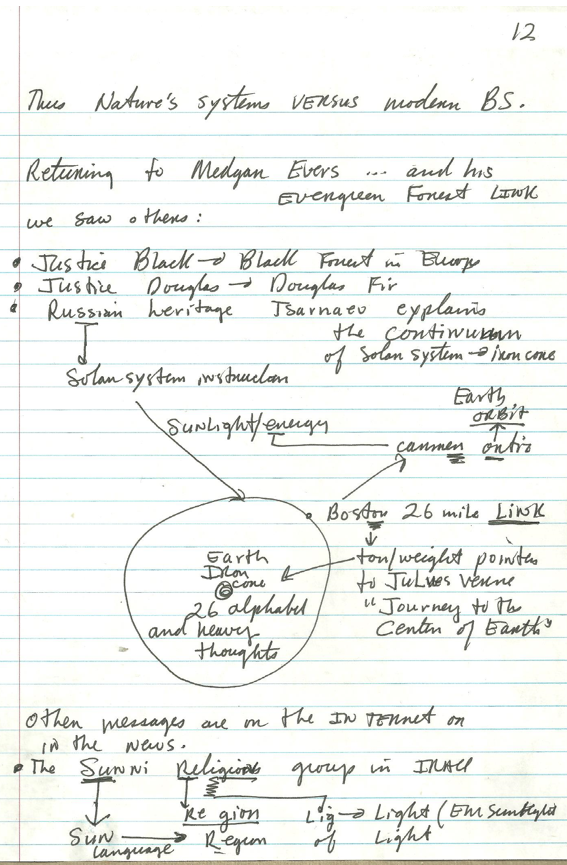 12
Thus Nature's systems VERSUS modern BS.
Returning to Medgan Evers ... and his
Evengreen Forest LINK
we saw others:
• Justice Black → Black Forest in Europe
• Justice Douglas → Douglas Fir
• Russian heritage Tsarnaev explains
the continuum
of Solar system → iron core
Solar system instruction
Earth
ORBIT
SUNLIGHT/energy
canmen ontio
Boston 26 mile LINK
Earth
Iron
core
26 alphabet
and heavy
thoughts
ton/weight pointer
to JuLves Verne
"Journey to the
Center of Earth"
Other messages are on the INTERnet on
in the news.
• The Sunni Religious group in IRAQ
Re gion Lig → Light (EM sunlight
Sun → Region of Light
Language